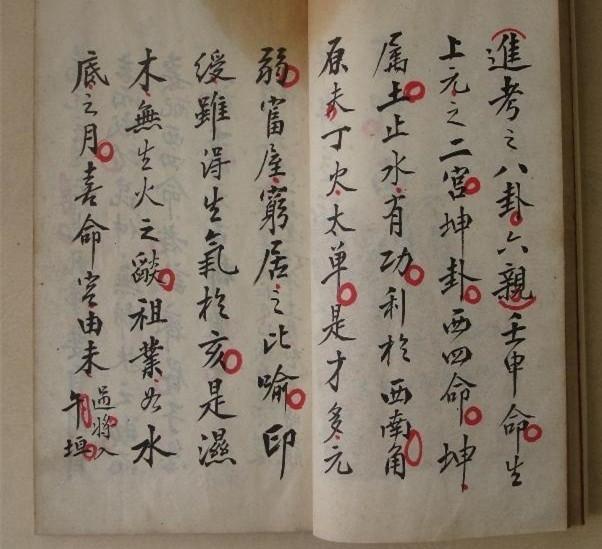 進考之八卦六親壬申命生
上元之二宮坤卦西四命坤
属土止水有功利於西南角
原未丁火太单是才多元
弱富屋窮居之比喻印
綬雖得生氣於亥是濕
木無生火之燄祖業如水
底之月喜命宮由未過將入
午垣